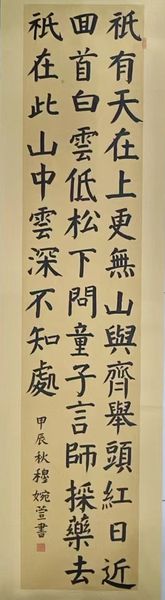 祇有天在上更無山與齊舉頭紅日近
回首白雲低松下問童子言師採藥去
祇在此山中雲深不知處
甲辰秋穆婉萱書